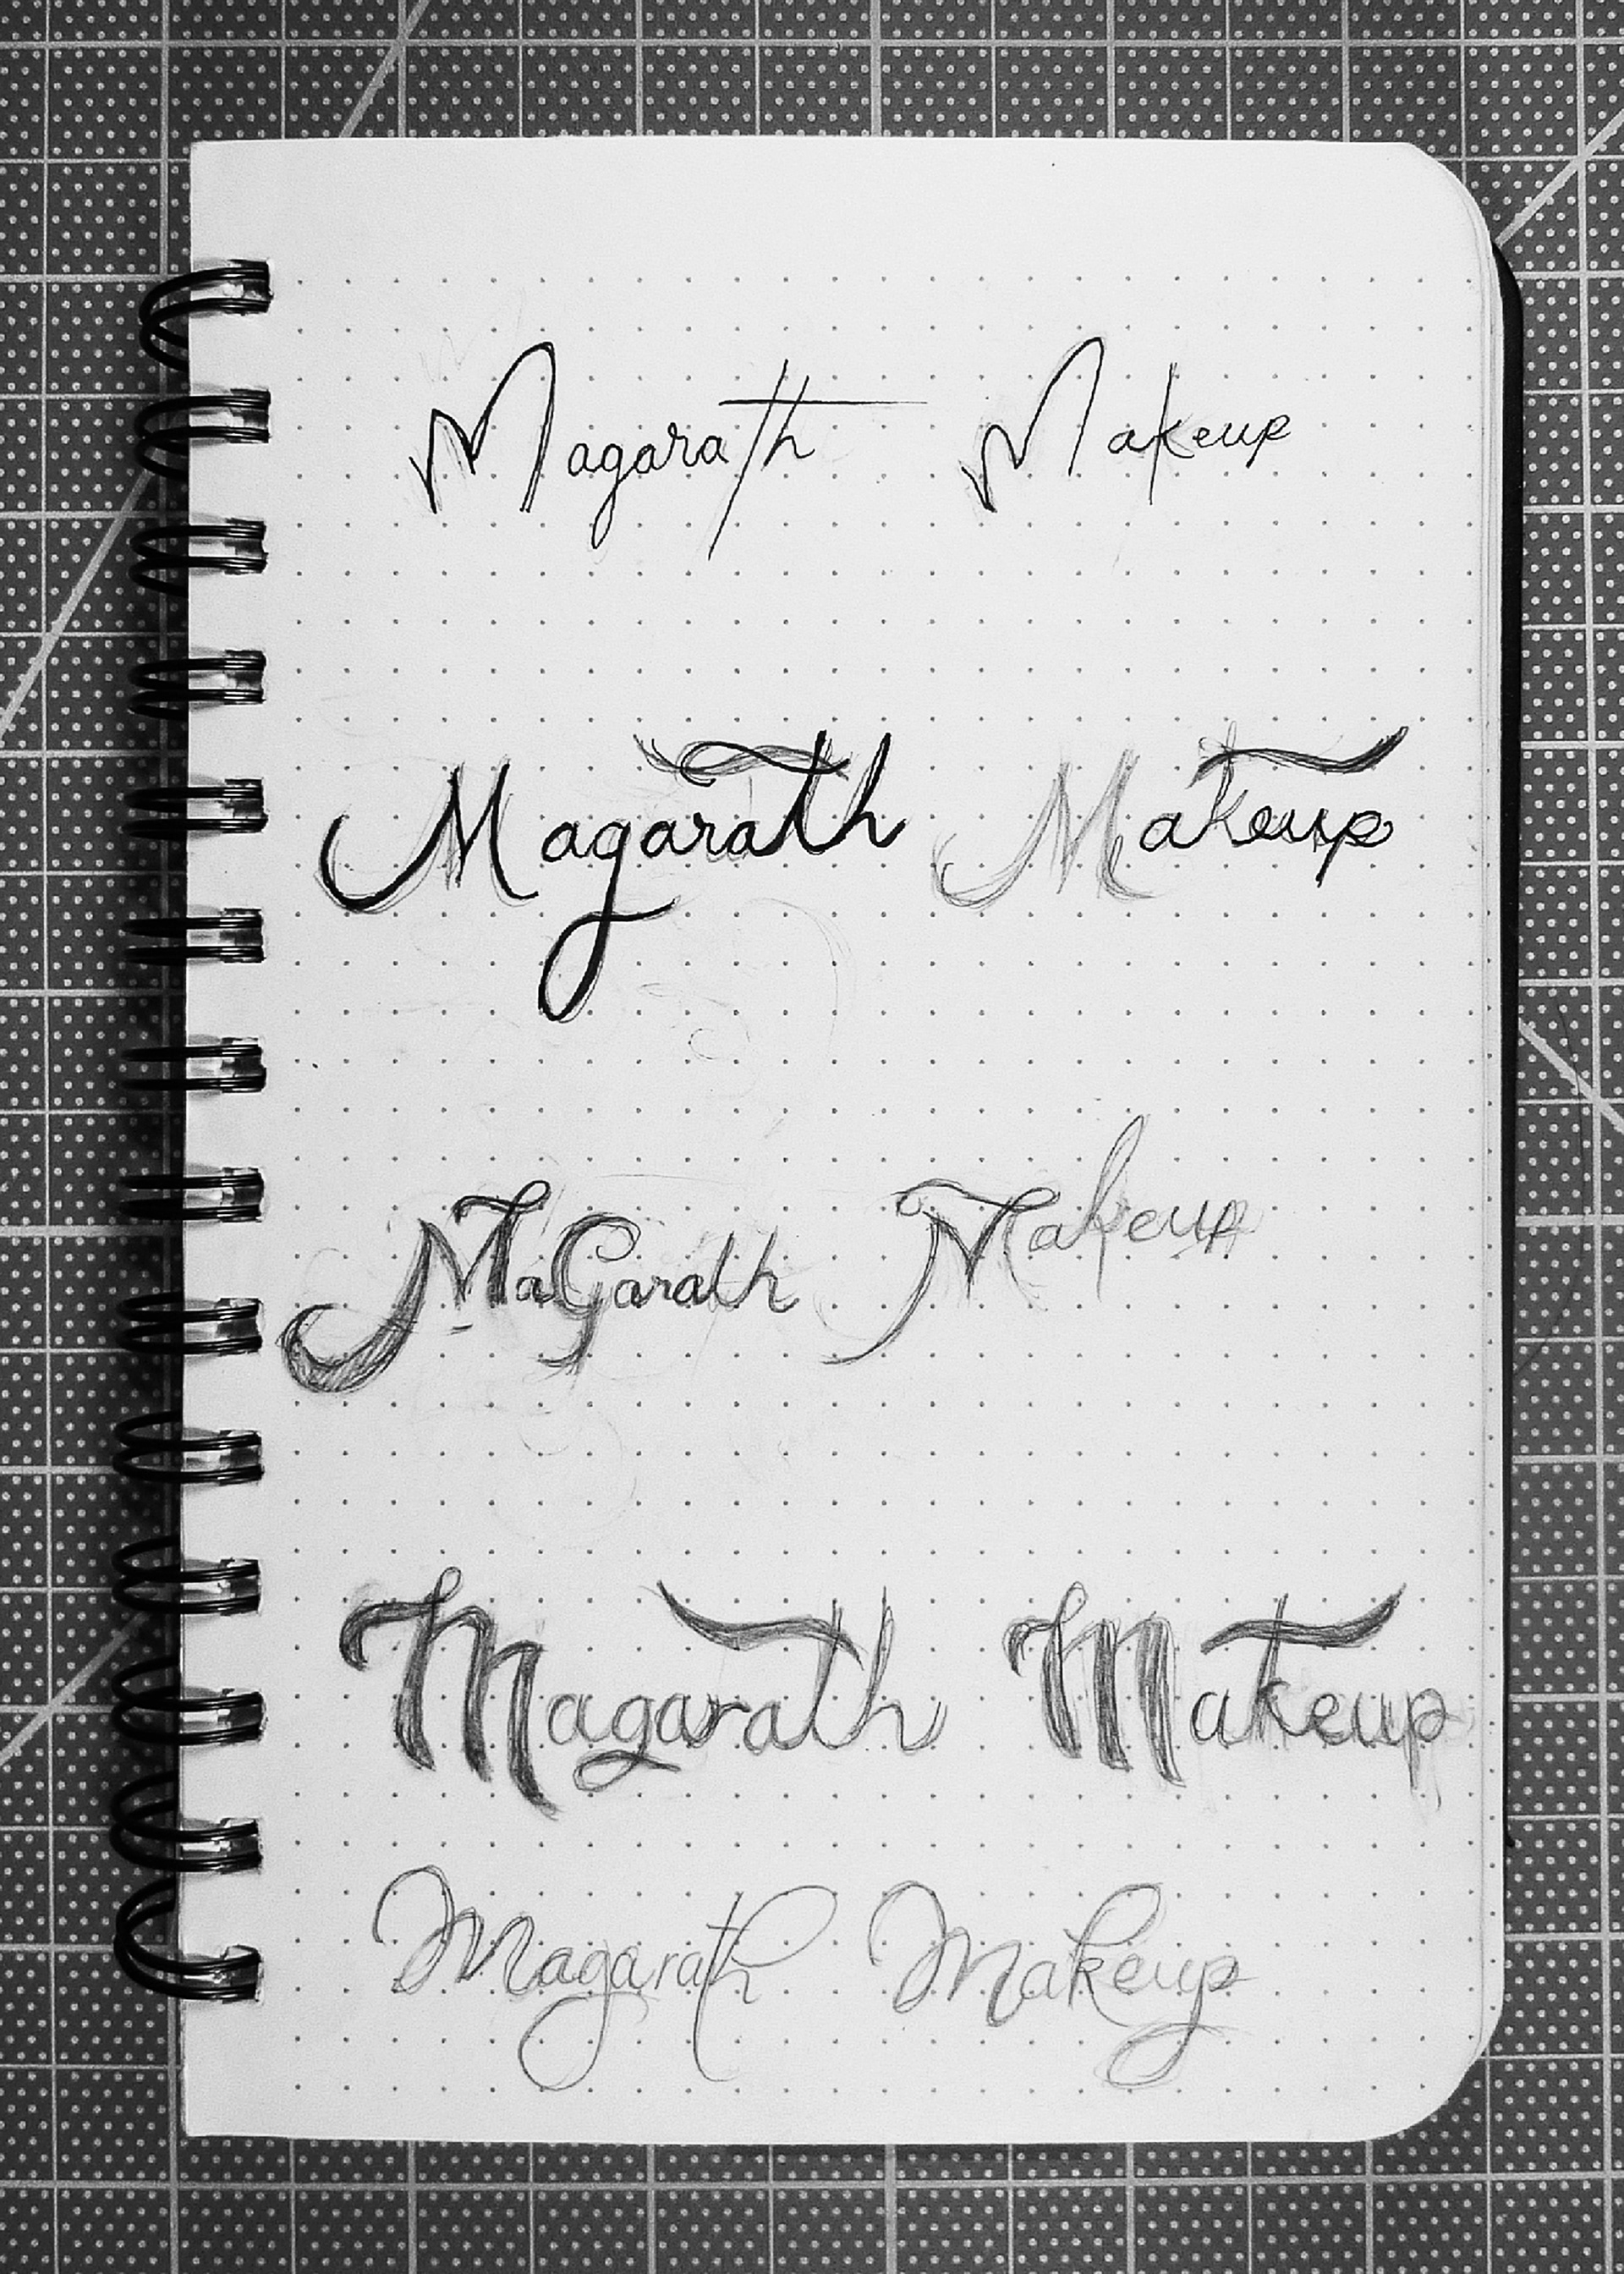 Magarath Makeup
Magarath Makeup
MaGarath Makeup
Magarath Makeup
Magarath Makeup